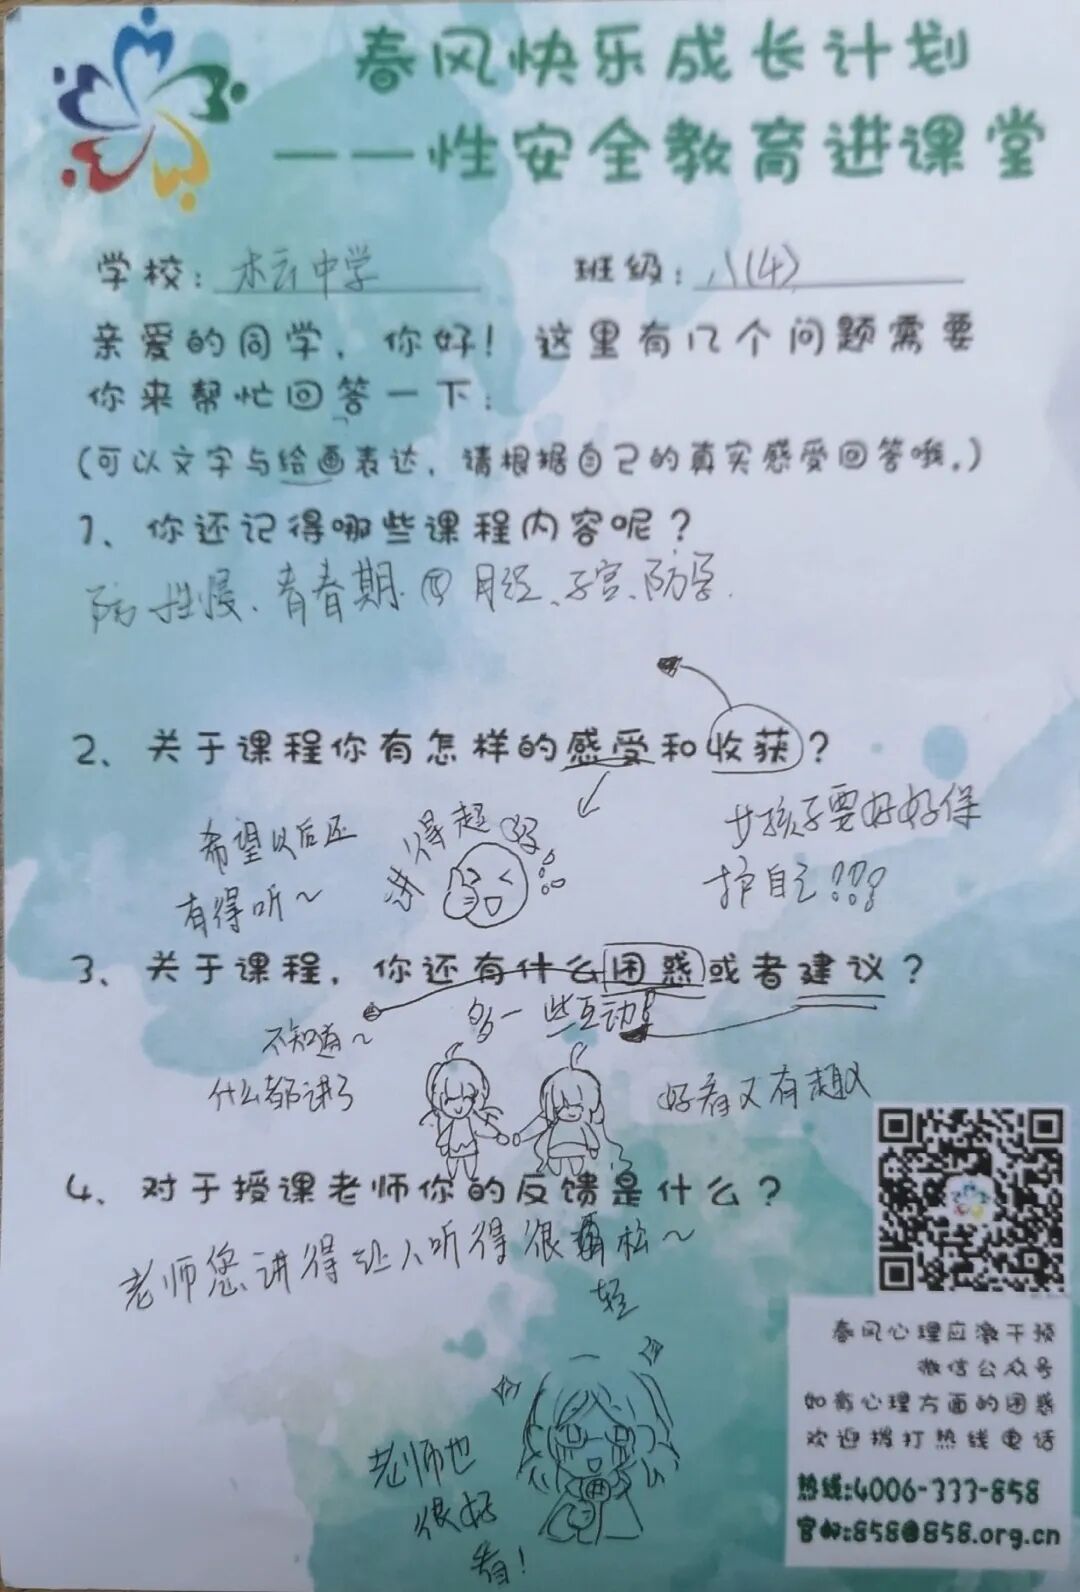 春风快乐成长计划
——性安全教育进课堂
学校：木云中学 班级：八(4)
亲爱的同学，你好！这里有几个问题需要
你来帮忙回答一下：
(可以文字与绘画表达，请根据自己的真实感受回答哦。)
1、你还记得哪些课程内容呢？
防性侵、青春期、月经、子宫、防孕.
2、关于课程你有怎样的感受和收获？
希望以后还
有得听~
讲得超好
女孩子要好好保
护自己!!!
3、关于课程，你还有什么困惑或者建议？
不知道~
什么都讲了
多一些互动!
好看又有趣
4、对于授课老师你的反馈是什么？
老师您讲得让人听得很轻松~
老师也
很好
看!
春风心理应激干预
微信公众号
如有心理方面的困惑
欢迎拨打热线电话
热线:4006-333-858
官邮:858@858.org.cn